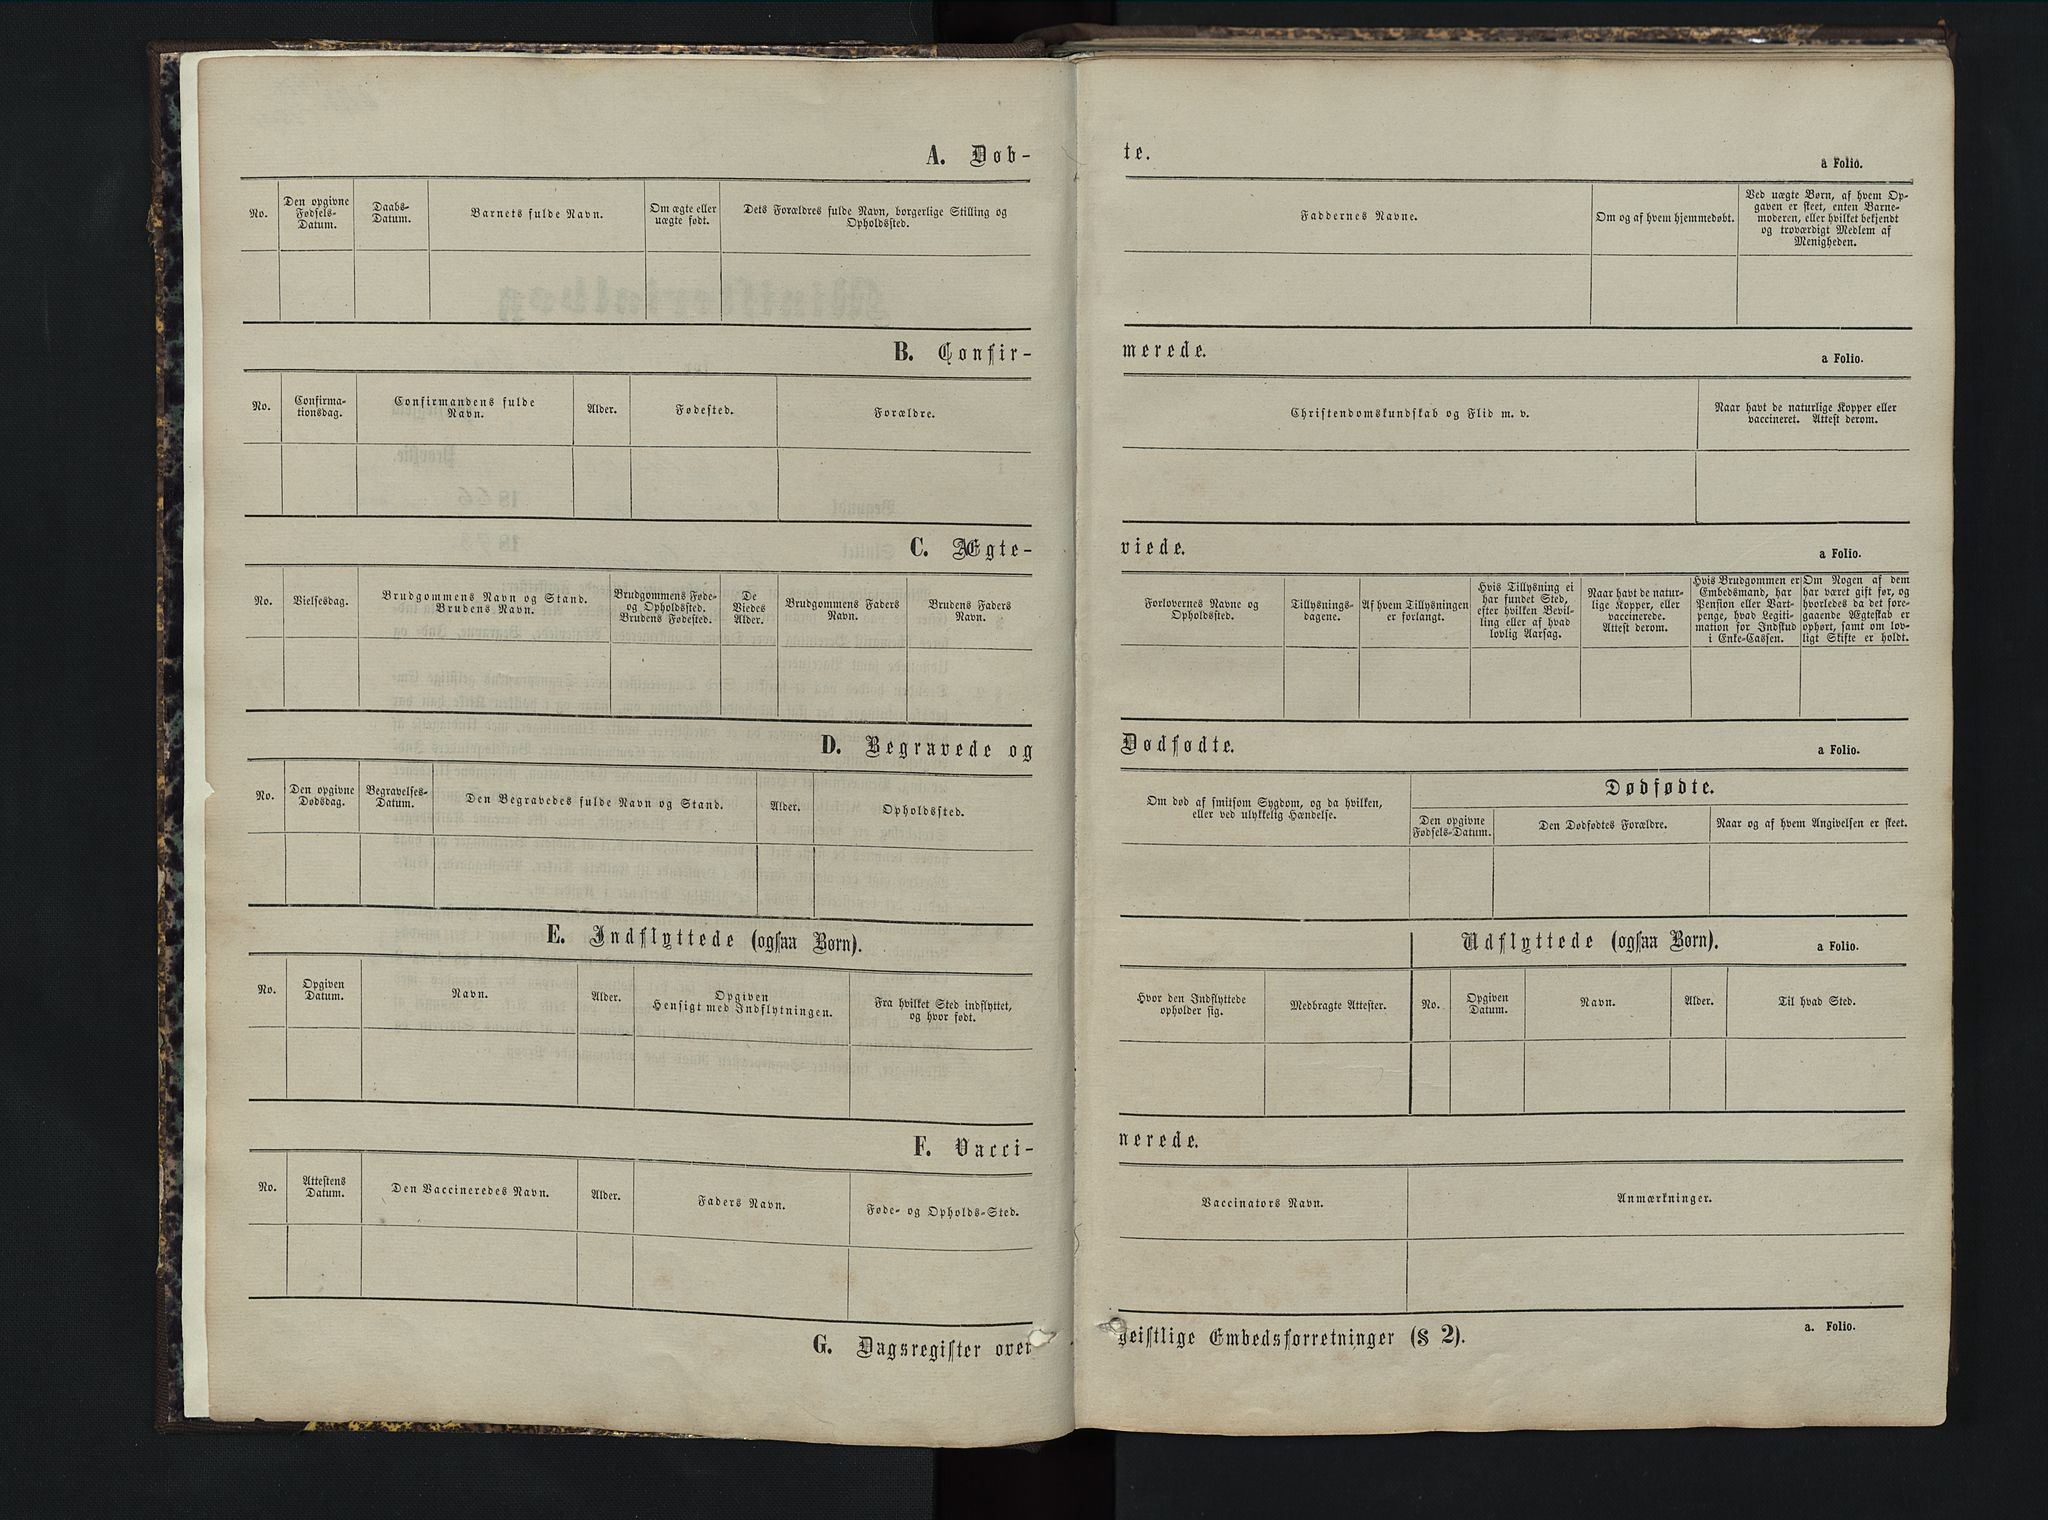 A. Døb-
te.
a Folio.
No.
Den opgivne
Fødsels-
Datum.
Daabs-
Datum.
Barnets fulde Navn.
Om ægte eller
uægte født.
Dets Forældres fulde Navn, borgerlige Stilling og
Opholdssted.
Faddernes Navne.
Om og af hvem hjemmedøbt.
Ved uægte Børn, af hvem Op-
gaven er skeet, enten Barne-
moderen, eller hvilket bekjendt
og troværdigt Medlem af
Menigheden.
B. Confir-
merede.
a Folio.
No.
Confirma-
tionsdag.
Confirmandens fulde
Navn.
Alder.
Fødested.
Forældre.
Christendomskundskab og Flid m. v.
Naar havt de naturlige Kopper eller
vaccineret. Attest derom.
C. Ægte-
viede.
a Folio.
No.
Vielsesdag.
Brudgommens Navn og Stand.
Brudens Navn.
Brudgommens Føde-
og Opholdssted.
Brudens Fødested.
De
Viedes
Alder.
Brudgommens Faders
Navn.
Brudens Faders
Navn.
Forlovernes Navne og
Opholdssted.
Tillysnings-
dagene.
Af hvem Tillysningen
er forlangt.
Hvis Tillysning ei
har fundet Sted,
efter hvilken Bevil-
ling eller af hvad
lovlig Aarsag.
Naar havt de natur-
lige Kopper, eller
vaccinerede.
Attest derom.
Hvis Brudgommen er
Embedsmand, har
Pension eller Vart-
penge, hvad Legiti-
mation for Indskud
i Enke-Cassen.
Om Nogen af dem
har været gift før, og
hvorledes da det fore-
gaaende Ægteskab er
ophørt, samt om lov-
ligt Skifte er holdt.
D. Begravede og
Dødfødte.
a Folio.
No.
Den opgivne
Dødsdag.
Begravelses-
Datum.
Den Begravedes fulde Navn og Stand.
Alder.
Opholdssted.
Om død af smitsom Sygdom, og da hvilken,
eller ved ulykkelig Hændelse.
Dødfødte.
Den opgivne
Fødsels-Datum.
Den Dødfødtes Forældre.
Naar og af hvem Angivelsen er skeet.
E. Indflyttede (ogsaa Børn).
Udflyttede (ogsaa Børn).
a Folio.
No.
Opgiven
Datum.
Navn.
Alder.
Opgiven
Hensigt med Indflytningen.
Fra hvilket Sted indflyttet,
og hvor født.
Hvor den Indflyttede
opholder sig.
Medbragte Attester.
No.
Opgiven
Datum.
Navn.
Alder.
Til hvad Sted.
F. Vacci-
nerede.
No.
Attestens
Datum.
Den Vaccineredes Navn.
Alder.
Faders Navn.
Føde- og Opholds-Sted.
Vaccinators Navn.
Anmærkninger.
G. Dagsregister over
geistlige Embedsforretninger (§ 2).
a. Folio.